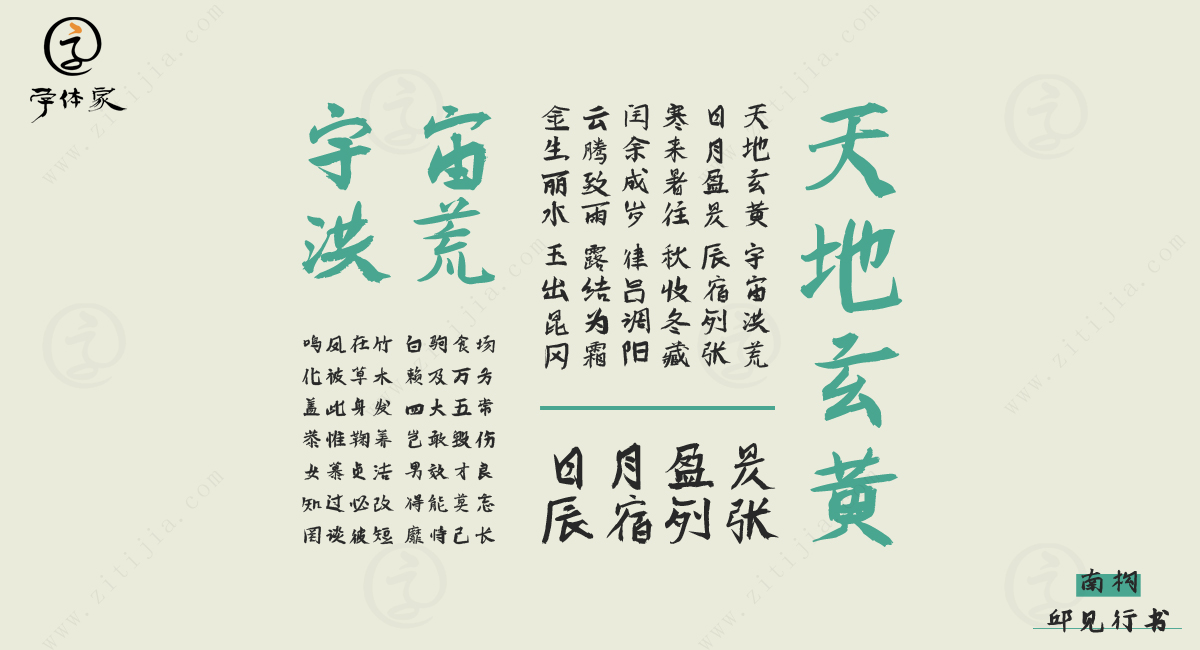 字体家
天地玄黄
宇宙
洪荒
天地玄黄 宇宙洪荒
日月盈昃 辰宿列张
寒来暑往 秋收冬藏
闰余成岁 律吕调阳
云腾致雨 露结为霜
金生丽水 玉出昆冈
日月盈昃
辰宿列张
鸣凤在竹 白驹食场
化被草木 赖及万方
盖此身发 四大五常
恭惟鞠养 岂敢毁伤
女慕贞洁 男效才良
知过必改 得能莫忘
罔谈彼短 靡恃己长
南构
邱见行书
www.zitijia.com